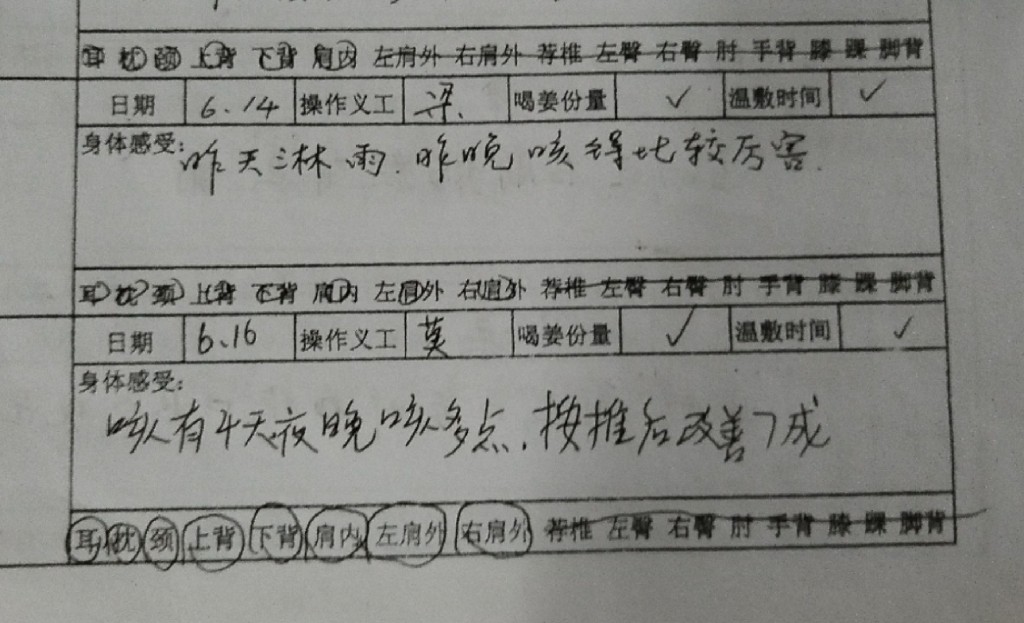 耳 枕 颈 上背 下背 肩内 左肩外 右肩外 荐椎 左臀 右臀 肘 手背 膝 踝 脚背
日期 6.14 操作义工 梁. 喝姜份量 ✓ 温敷时间 ✓
身体感受: 昨天淋雨.昨晚咳得比较厉害.
耳 枕 颈 上背 下背 肩内 左肩外 右肩外 荐椎 左臀 右臀 肘 手背 膝 踝 脚背
日期 6.16 操作义工 莫 喝姜份量 ✓ 温敷时间 ✓
身体感受:
咳有4天夜晚咳多点.按推后改善7成
耳 枕 颈 上背 下背 肩内 左肩外 右肩外 荐椎 左臀 右臀 肘 手背 膝 踝 脚背